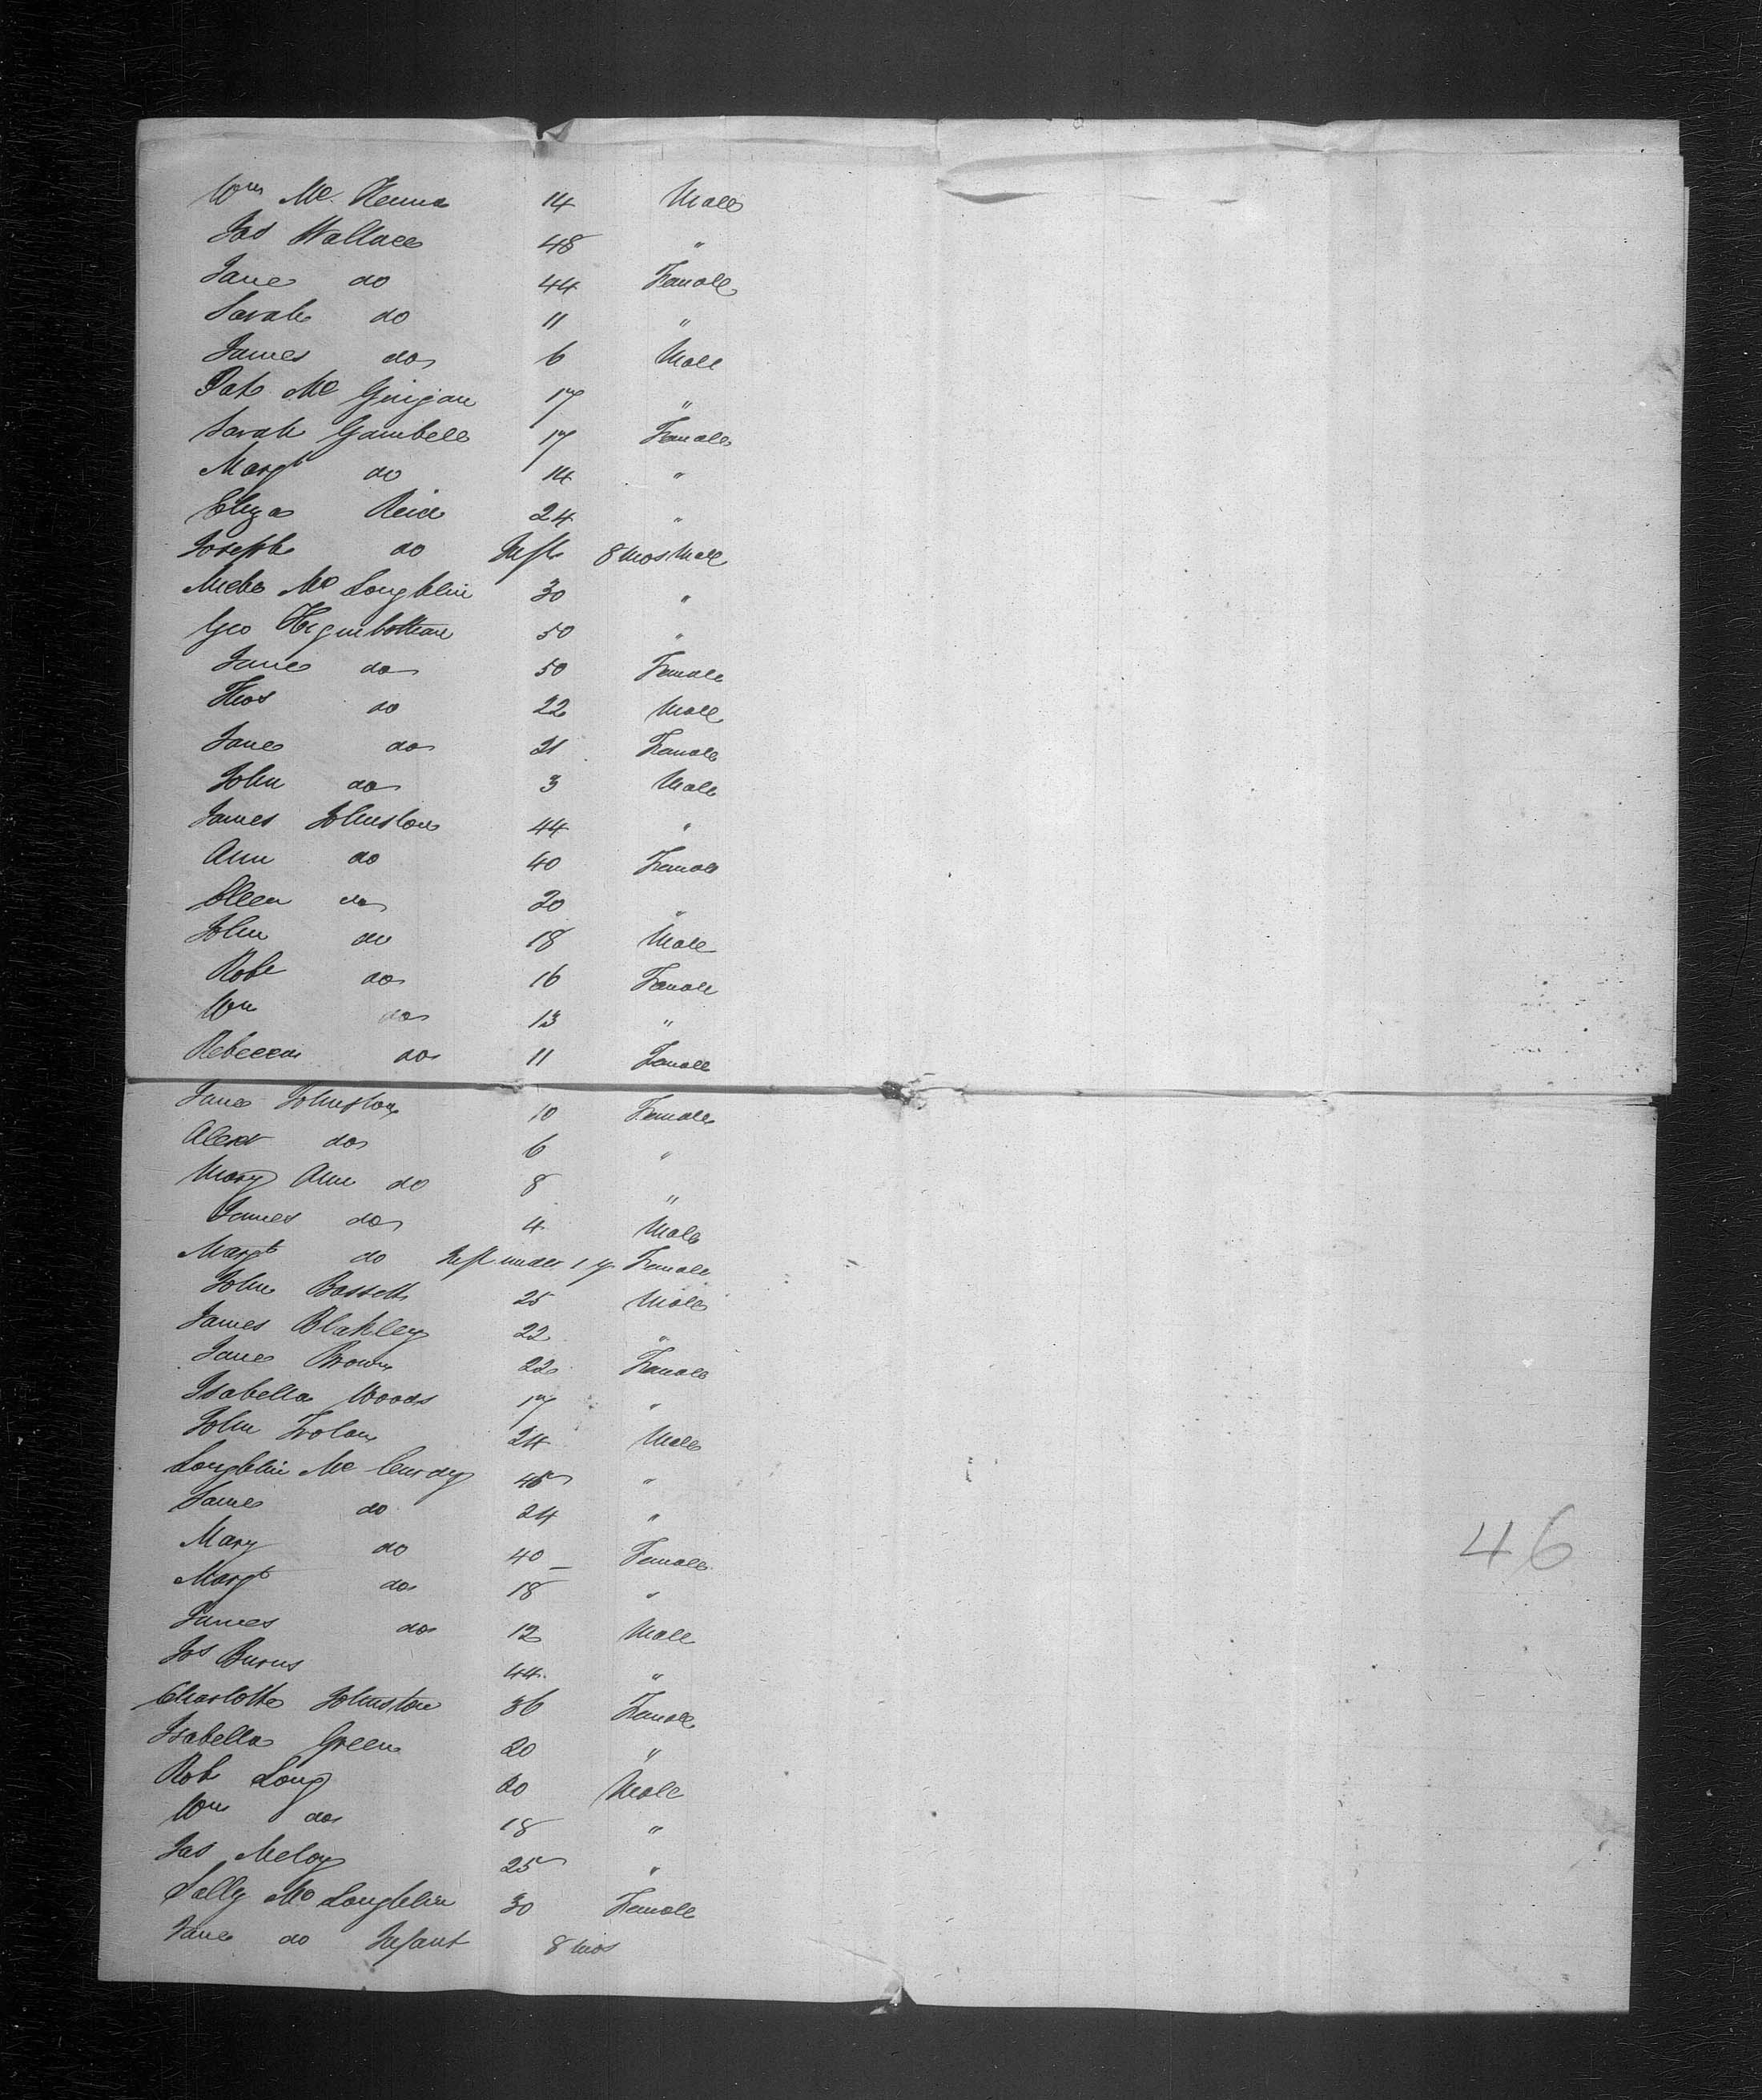 Wm Mc. Kenna 14 Male
Jas Wallace 48 "
Jane do 44 Female
Sarah do 11 "
James do 6 Male
Pat Mc Guigan 17 "
Sarah Gambell 17 Female
Margt do 14 "
Eliza Reid 24 "
Joseph do Inft 8 Mos Male
Mc Loughlin 30 "
Geo Higinbotham 50 "
Jane do 50 Female
Thos do 22 Male
Jane do 21 Female
John do 3 Male
James Johnston 44 "
Ann do 40 Female
Ellen do 20 "
John do 18 Male
Robt do 16 Female
Wm do 13 "
Rebecca do 11 Female
Jane Johnston 10 Female
Alexr do 6 "
Mary Ann do 8 "
James do 4 Male
Margt do Inft under 1 y Female
John Bassett 25 Male
James Blakley 22 "
Jane Brown 22 Female
Isabella Woods 17 "
John Trolan 24 Male
Loughlin Mc Curdy 45 "
James do 24 "
Mary do 40 Female
Margt do 18 "
James do 12 Male
Jos Burns 44 "
Charlotte Johnston 36 Female
Isabella Green 20 "
Robt Long 20 Male
Wm do 18 "
Jas Meloy 25 "
Sally Mc Loughlin 30 Female
Jane do Infant 8 Mos
46